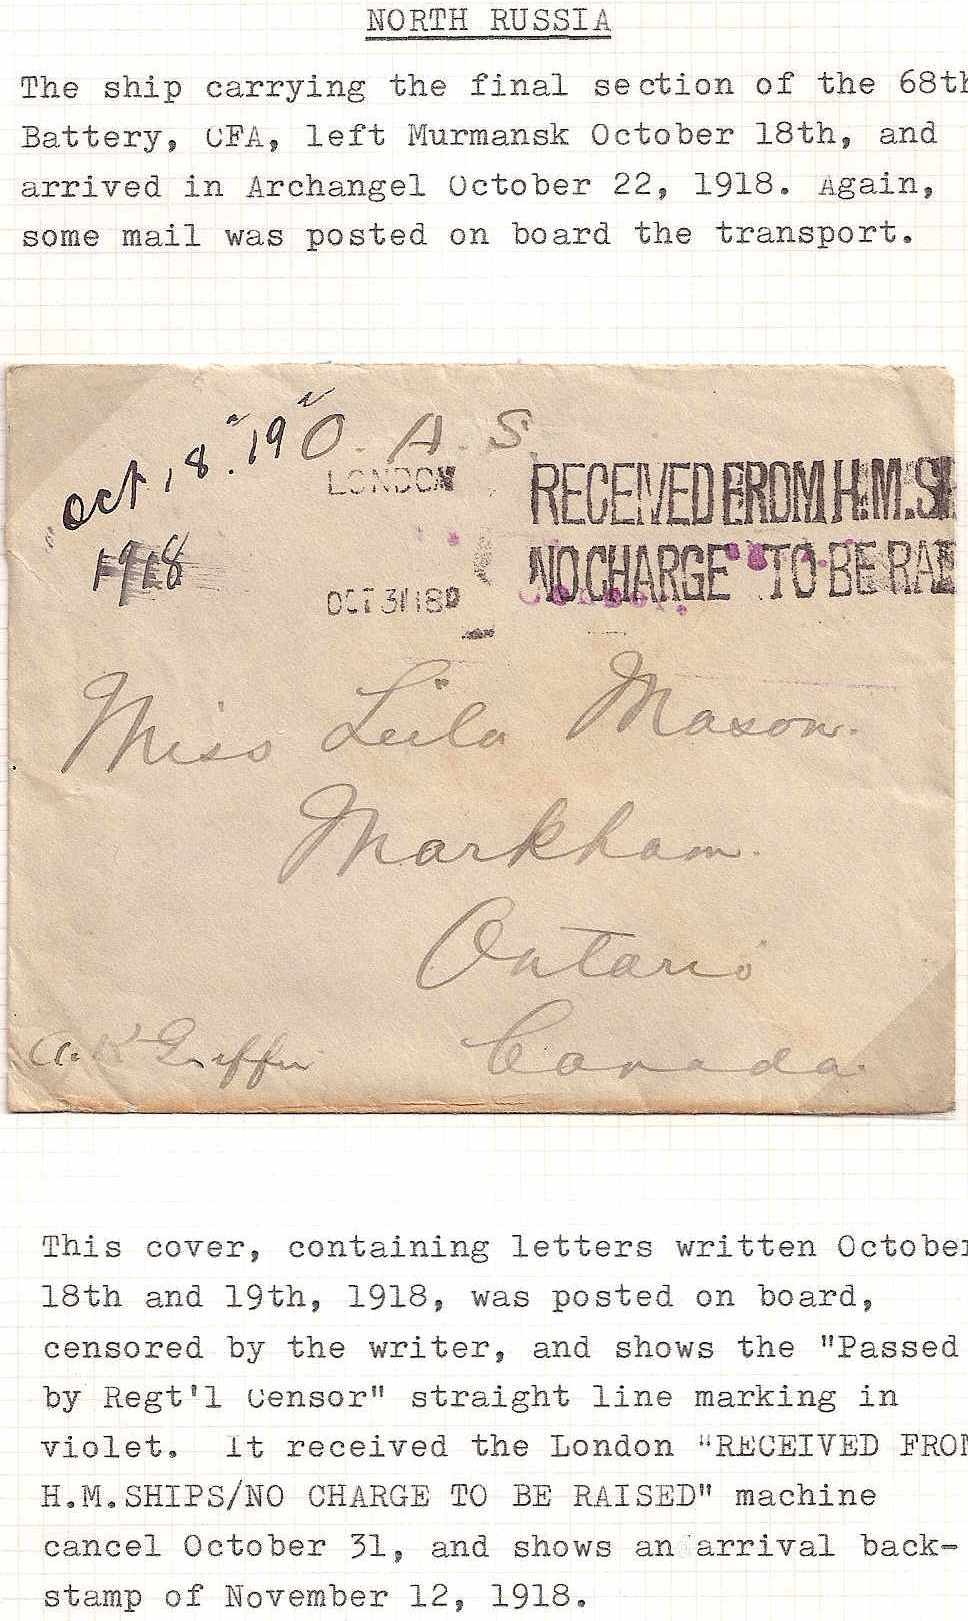 NORTH RUSSIA
The ship carrying the final section of the 68th
Battery, CFA, left Murmansk October 18th, and
arrived in Archangel October 22, 1918. Again,
some mail was posted on board the transport.
Oct 18. 19
O. A. S.
1918
LONDON
OCT 31 18
RECEIVED FROM H.M.S
NO CHARGE TO BE RAI
Miss Leila Mason.
Markham.
Ontario
Canada.
A. K Griffin
This cover, containing letters written October
18th and 19th, 1918, was posted on board,
censored by the writer, and shows the "Passed
by Regt'l Censor" straight line marking in
violet. It received the London "RECEIVED FROM
H.M.SHIPS/NO CHARGE TO BE RAISED" machine
cancel October 31, and shows an arrival back-
stamp of November 12, 1918.